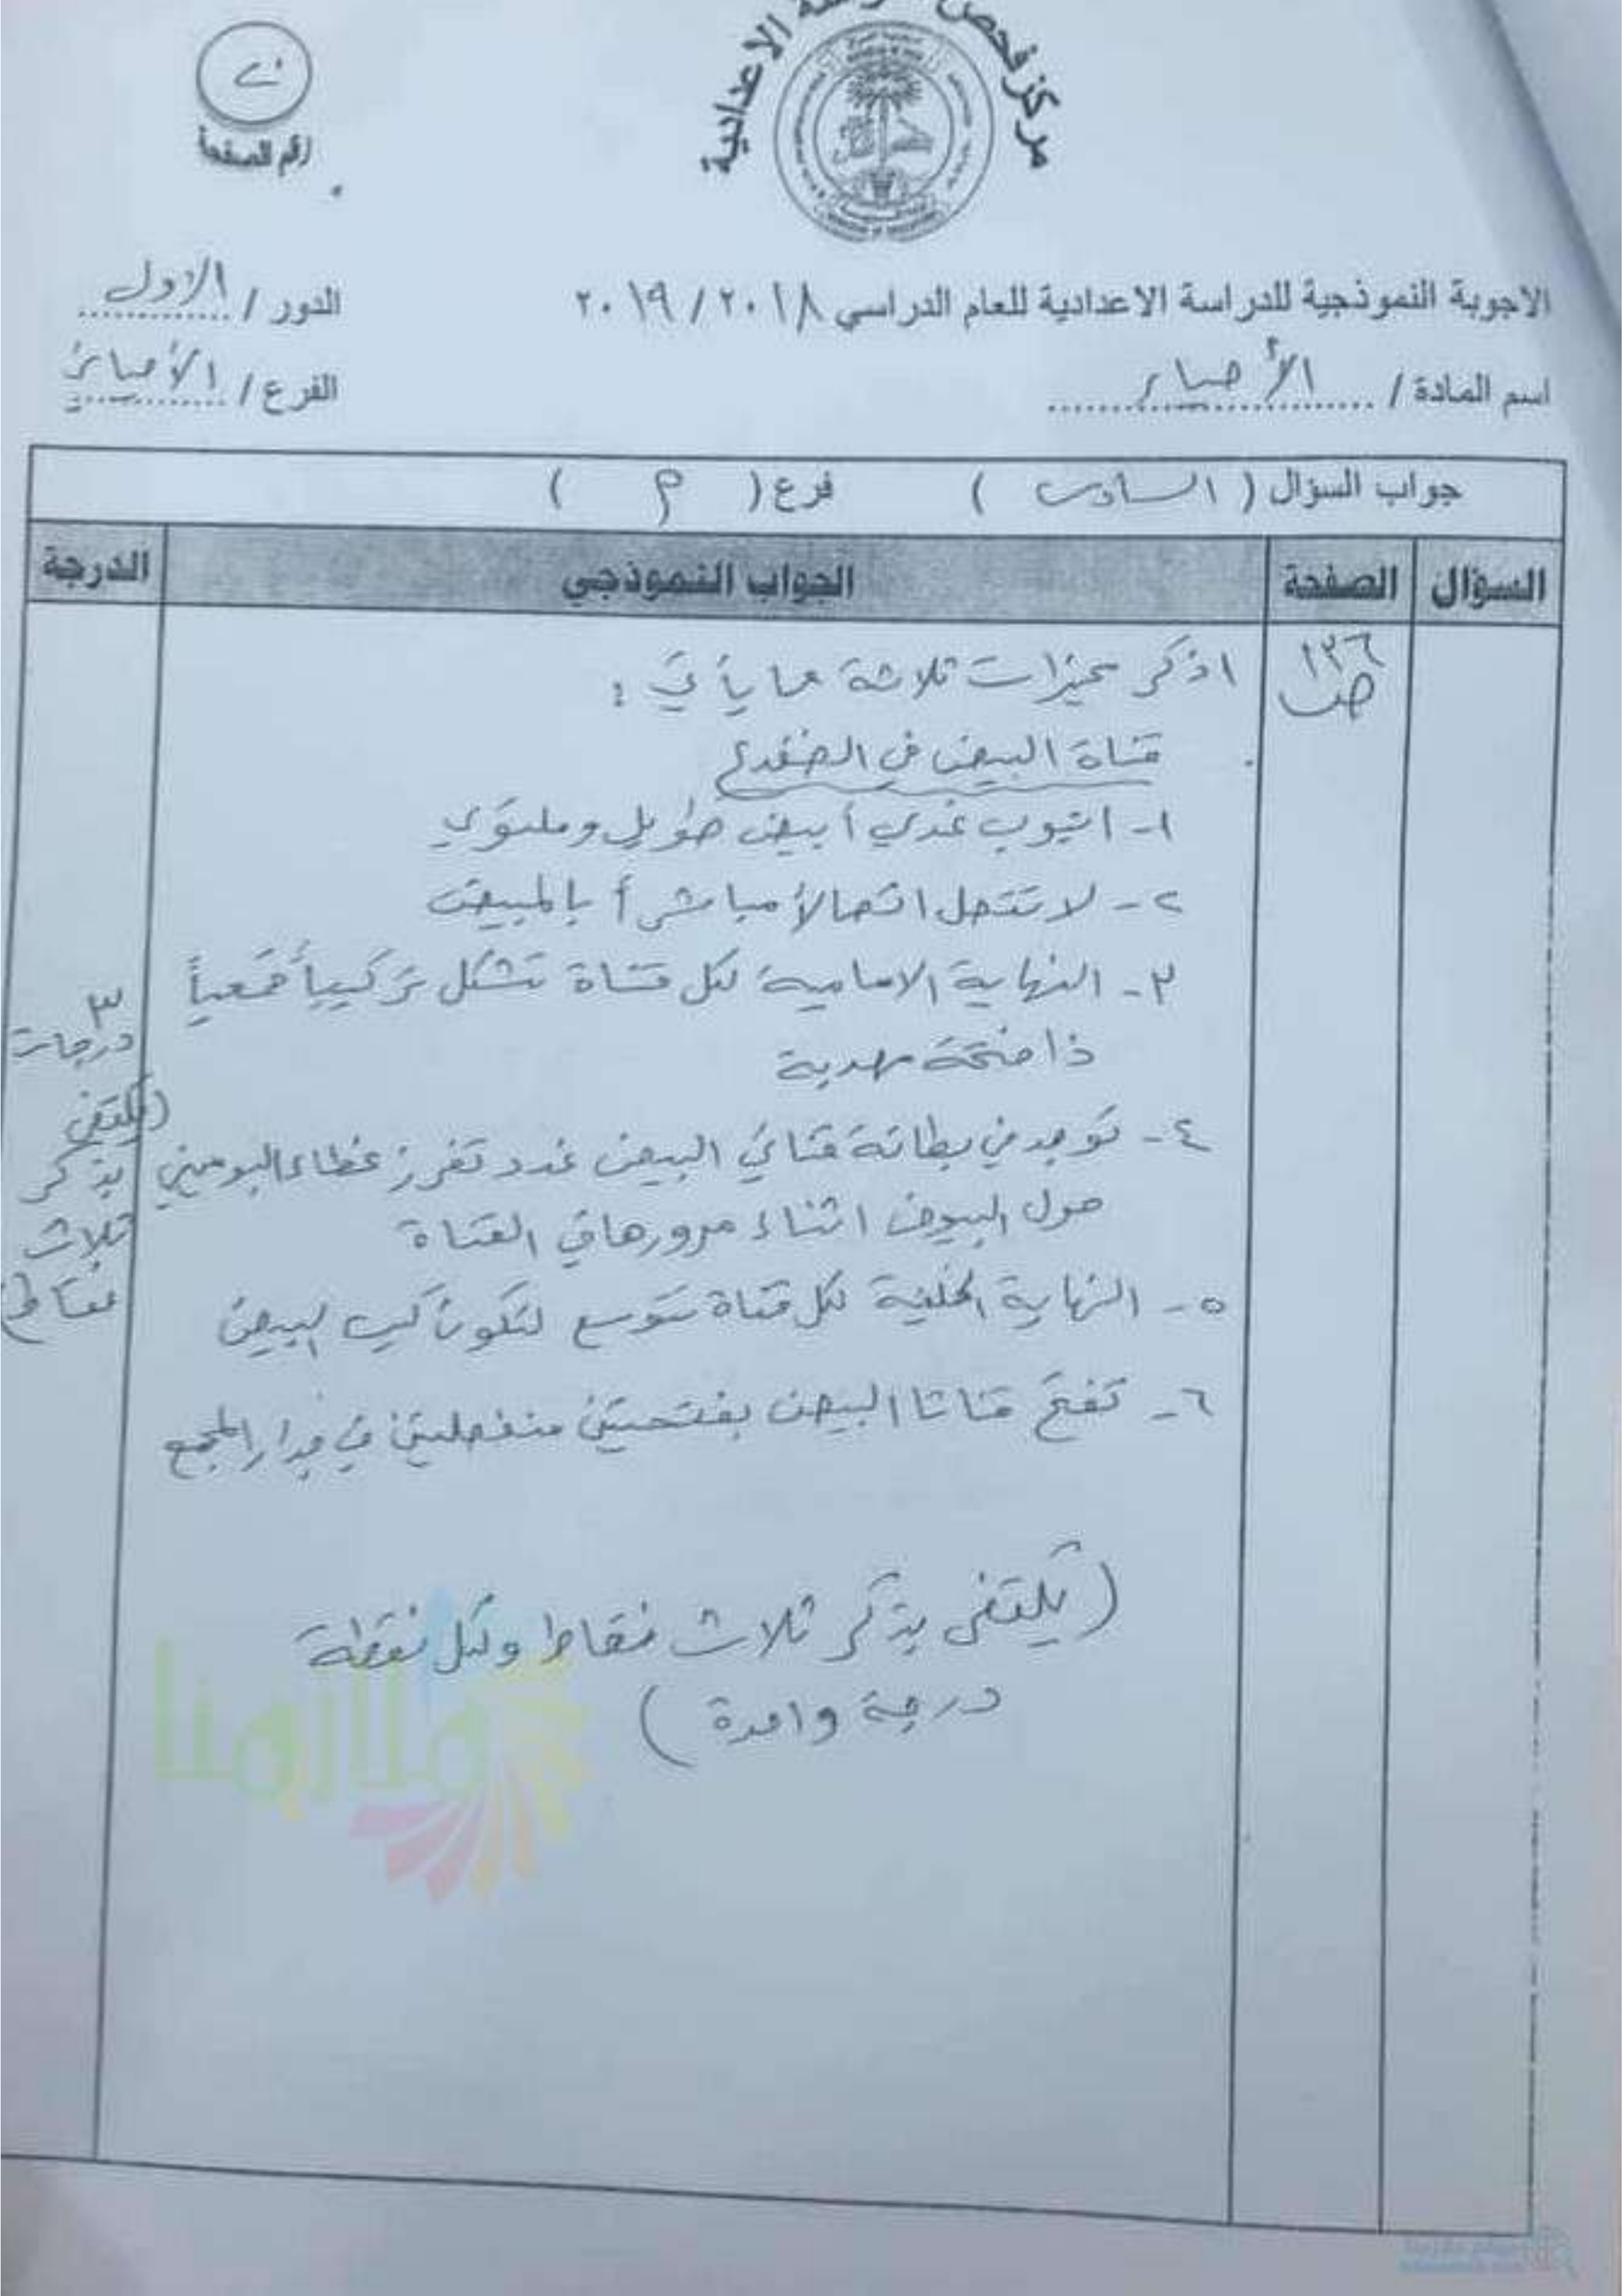 مركز فحص الدراسة الاعدادية
٢٠
رقم الصفحة
الاجوبة النموذجية للدراسة الاعدادية للعام الدراسي ٢٠١٨ / ٢٠١٩
الدور / الاول
اسم المادة / الأحياء
الفرع / الأحيائي
جواب السؤال ( السادس ) فرع ( P )
السؤال الصفحة الجواب النموذجي الدرجة
١٣٦
ص
اذكر مميزات ثلاثة مما يأتي :
قناة البيض في الضفدع
١- انبوب غدي أبيض طويل وملتوي
٢- لا تتصل اتصالاً مباشراً بالمبيض
٣- النهاية الامامية لكل قناة تشكل تركيباً قمعياً
ذا فتحة مهدبة
٤- توجد في بطانة قناتي البيض غدد تفرز غطاء البوميني
حول البيوض اثناء مرورها في القناة
٥- النهاية الخلفية لكل قناة تتوسع لتكون كيس البيض
٦- تفتح قناتا البيض بفتحتين منفصلتين في جدار المجمع
(يكتفى بذكر ثلاث نقاط ولكل نقطة
درجة واحدة)
٣
درجات
(يكتفى
بذكر
ثلاث
نقاط)
ملازمنا
موقع ملازمنا